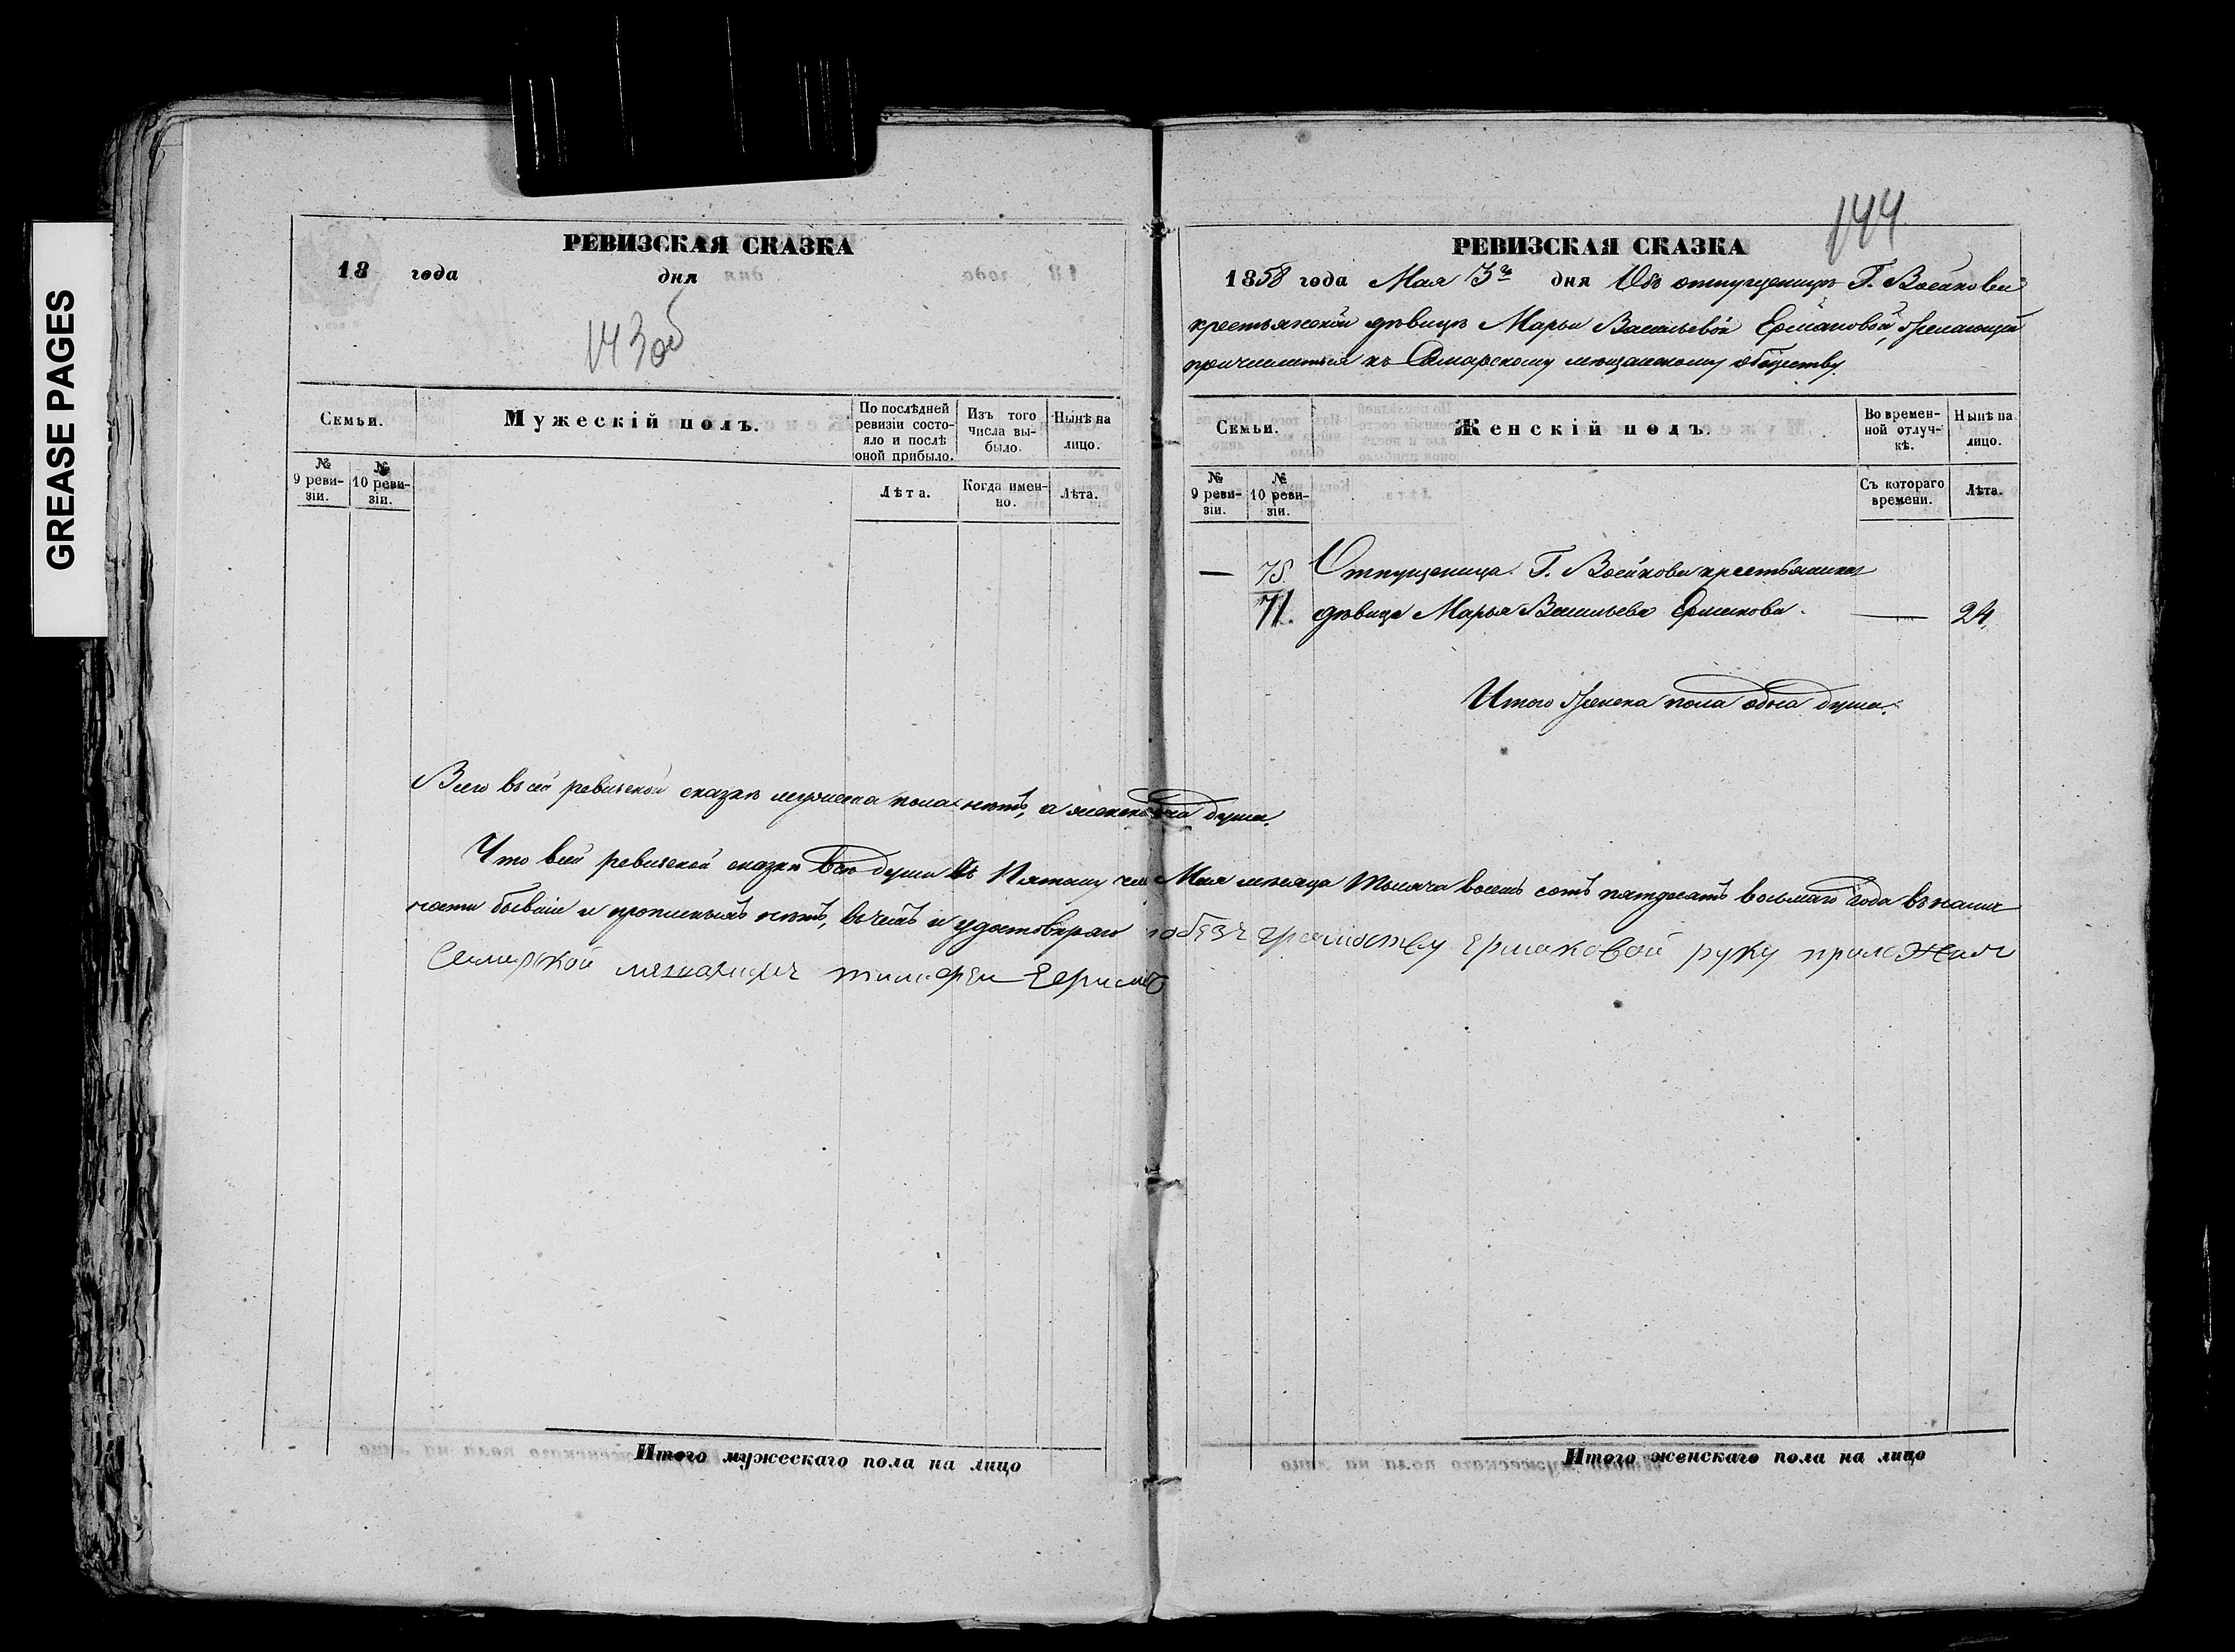 GREASE PAGES
РЕВИЗСКАЯ СКАЗКА
18 года дня
143об
Семьи.
Мужескій полъ.
По послѣдней ревизіи состояло и послѣ оной прибыло.
Изъ того числа выбыло.
Нынѣ на лицо.
№ 9 ревизіи.
№ 10 ревизіи.
Лѣта.
Когда именно.
Лѣта.
Всего въ сей ревизской сказкѣ мужеска пола нѣтъ, а женска одна душа.
Что в сей ревизской сказки всѣ души къ Пятому чис Мая мѣсяца тысяча восемь сотъ пятдесятъ восьмаго года въ налич
ности бывшіе и прописныхъ нѣтъ, въ чемъ и удостовѣряю
Самарской мещанинъ
Итого мужескаго пола на лицо
144
РЕВИЗСКАЯ СКАЗКА
1858 года Мая 3го дня Объ отпущеницѣ Г. Воейкова
крестьянской дѣвицѣ Марьи Васильевой Ермаковой, желающей
причислиться къ Самарскому мещанскому обществу.
Семьи.
Женскій полъ.
Во временной отлучкѣ.
Нынѣ на лицо.
№ 9 ревизіи.
№ 10 ревизіи.
Съ котораго времени.
Лѣта.
— 75. Отпущеница Г. Воейкова крестьянская
71. дѣвица Марья Васильева Ермакова. — 24.
Итого женска пола одна душа.
Ермаковой руку приложил
Итого женскаго пола на лицо